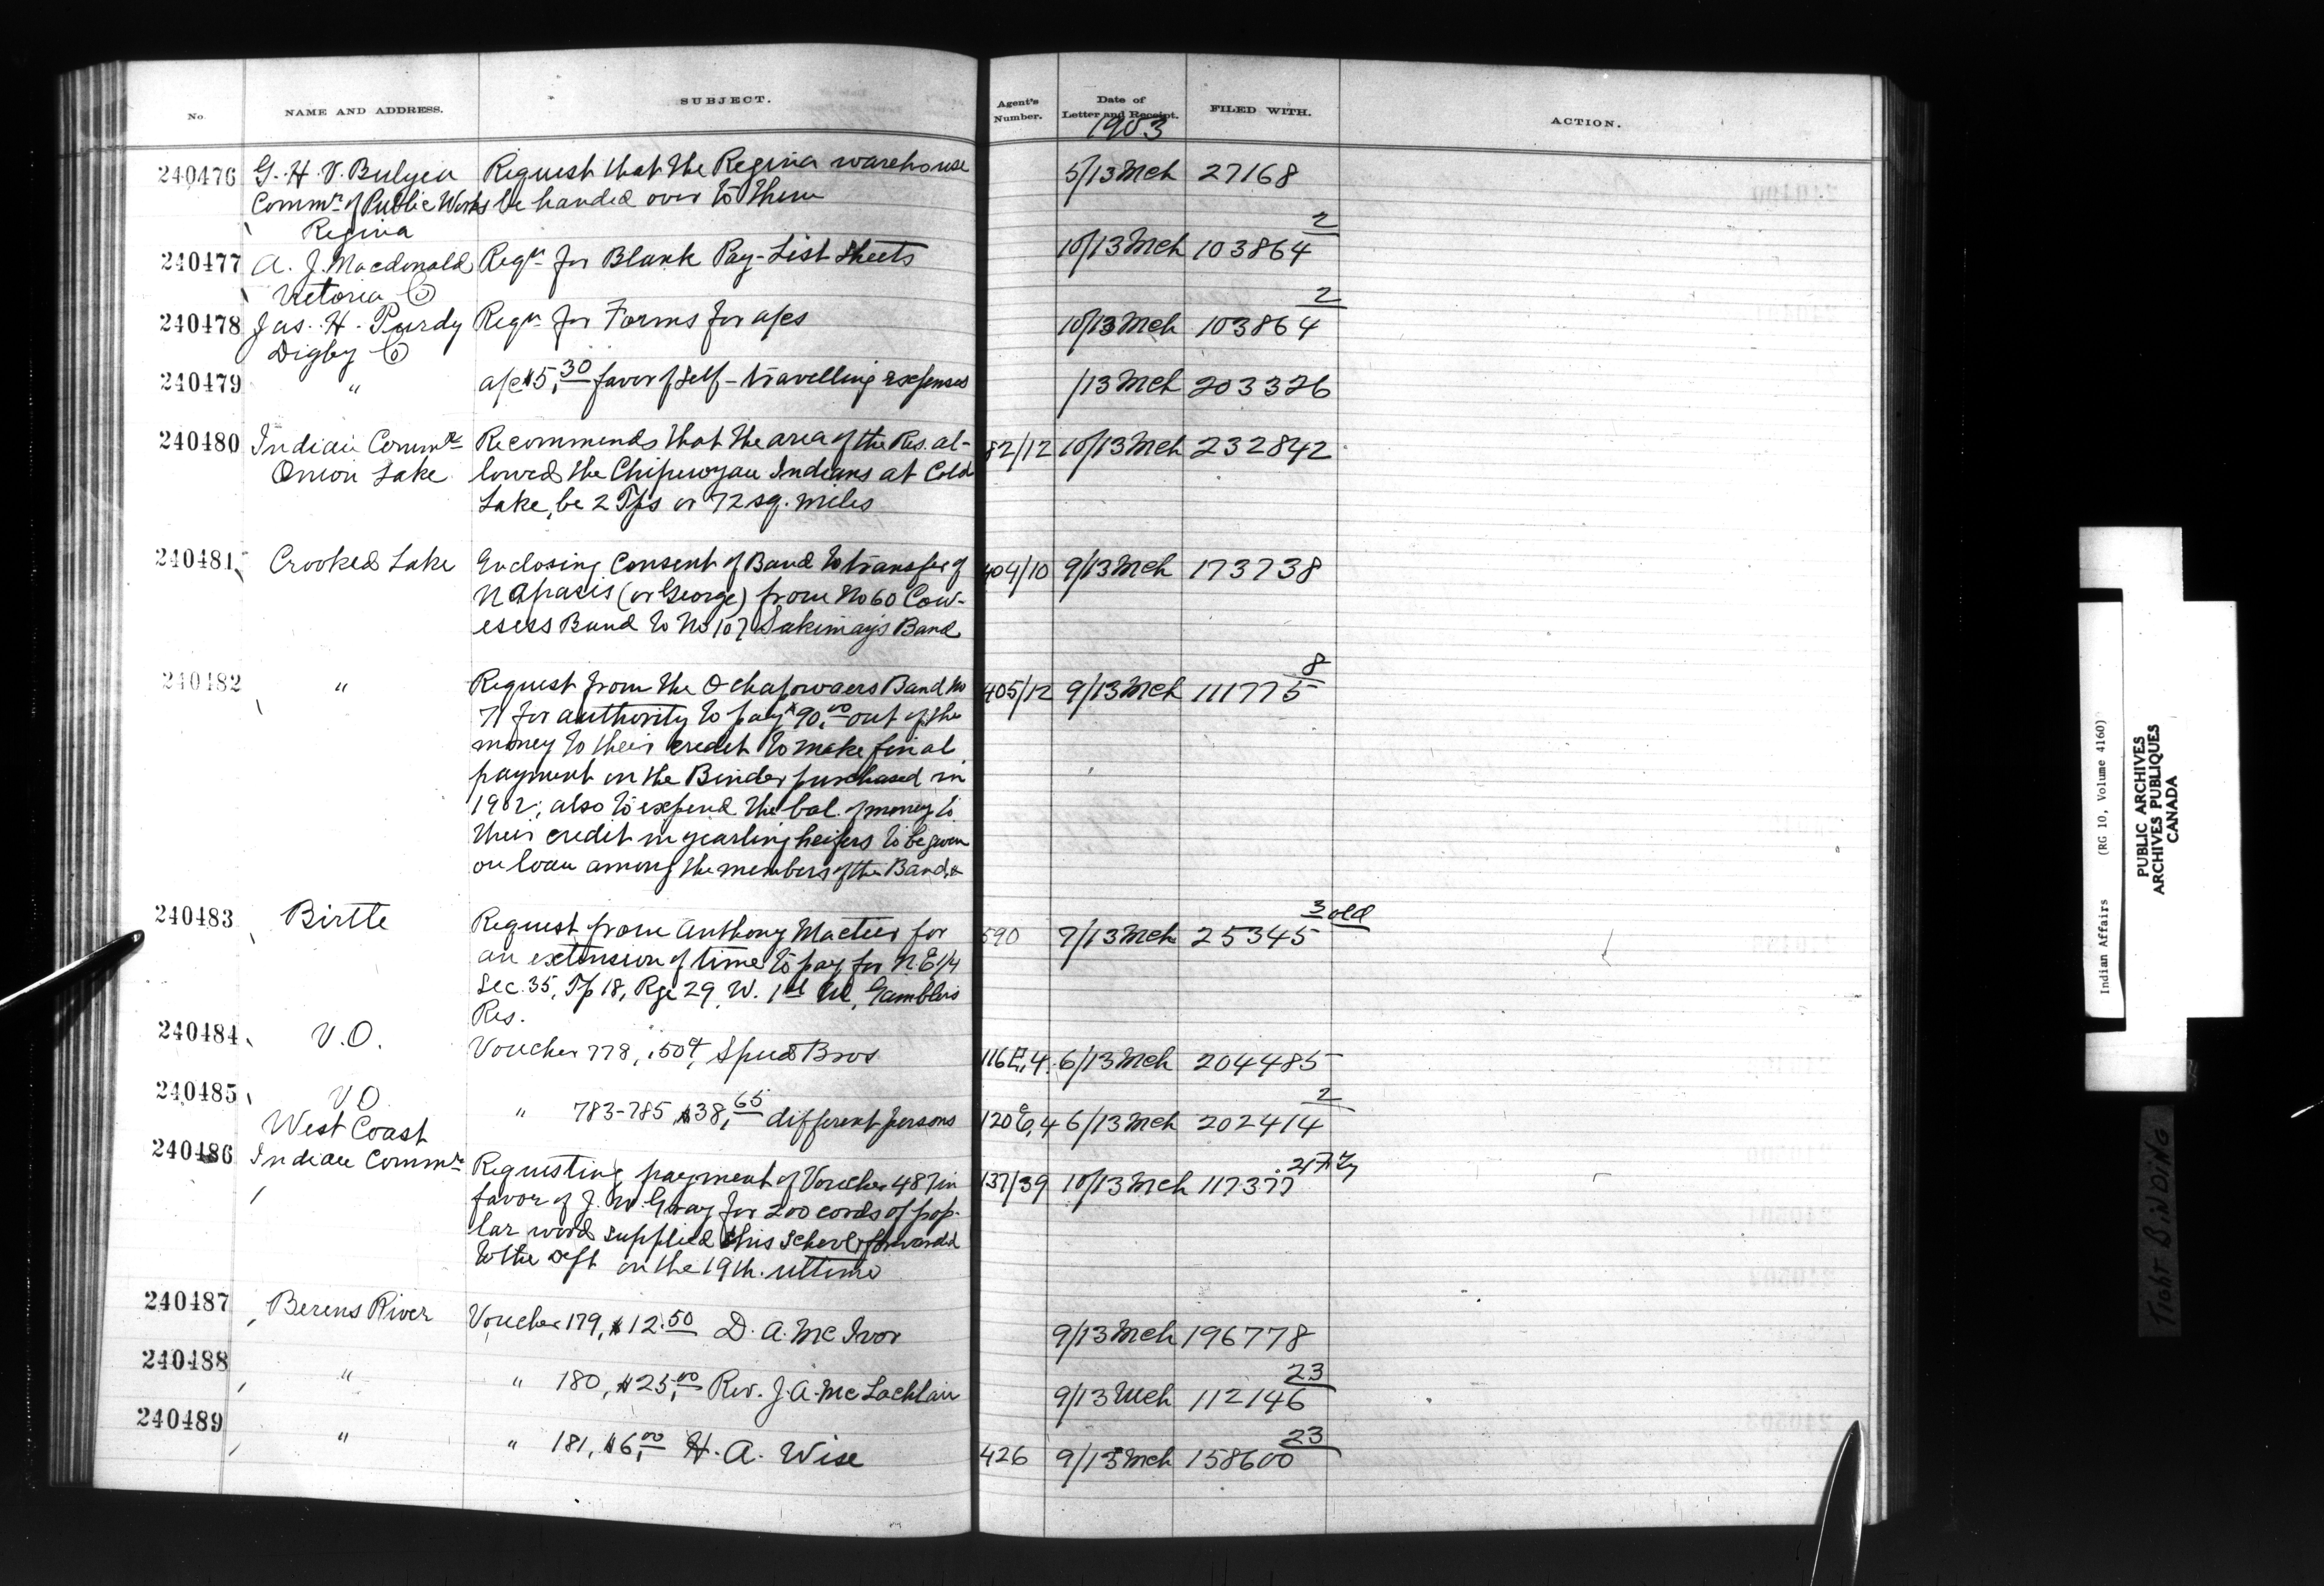 No. NAME AND ADDRESS. SUBJECT. Agent's Number. Date of Letter and Receipt. FILED WITH. ACTION.
1903
240476 G. H. V. Bulyea Request that the Regina warehouse 5/13 Mch 27168
Commr. of Public Works be handed over to them
Regina
240477 A. J. Macdonald Reqn for Blank Pay-List Sheets 10/13 Mch 103864 2
Victoria Co
240478 Jas. H. Purdy Reqn for Forms for a/cs 10/13 Mch 103864 2
Digby Co
240479 " a/c $5,30 favor of Self - travelling expenses /13 Mch 203326
240480 Indian Commr Recommends that the area of the Res. al- 82/12 10/13 Mch 232842
Onion Lake lowed the Chipewyan Indians at Cold
Lake, be 2 Tps or 72 sq. miles
240481 Crooked Lake Enclosing Consent of Band to transfer of 404/10 9/13 Mch 173738
Napasis (or George) from No 60 Cow-
esess Band to No 107 Sakimay's Band
240482 " Request from the Ochapowaces Band No 405/12 9/13 Mch 111775 8
71 for authority to pay $90,00 out of the
money to their credit to make final
payment on the Binder purchased in
1902; also to expend the bal. of money to
their credit in yearling heifers to be given
on loan among the members of the Band &
240483 Birtle Request from Anthony Macteer for 590 7/13 Mch 25345 3 old
an extension of time to pay for N.E 1/4
Sec. 35, Tp 18, Rge 29, W. 1st M, Gamblers
Res.
240484 V.O. Voucher 778, .50¢, Spud Bros 116E,4 6/13 Mch 204485
240485 V.O. " 783-785 $38,65 different persons 120E,4 6/13 Mch 202414 2
West Coast
240486 Indian Commr Requesting payment of Voucher 487 in 137/39 10/13 Mch 117377
favor of J. W. Gray for 200 cords of pop-
lar wood supplied this School & forwarded
to the Dept on the 19th. ultimo
240487 Berens River Voucher 179, $12.50 D. A. McIvor 9/13 Mch 196778
240488 " " 180, $25,00 Rev. J. A. McLachlan 9/13 Mch 112146 23
240489 " " 181, $6,00 H. A. Wise 426 9/13 Mch 158600 23
Indian Affairs (RG 10, Volume 4160)
PUBLIC ARCHIVES
ARCHIVES PUBLIQUES
CANADA
TIGHT BINDING